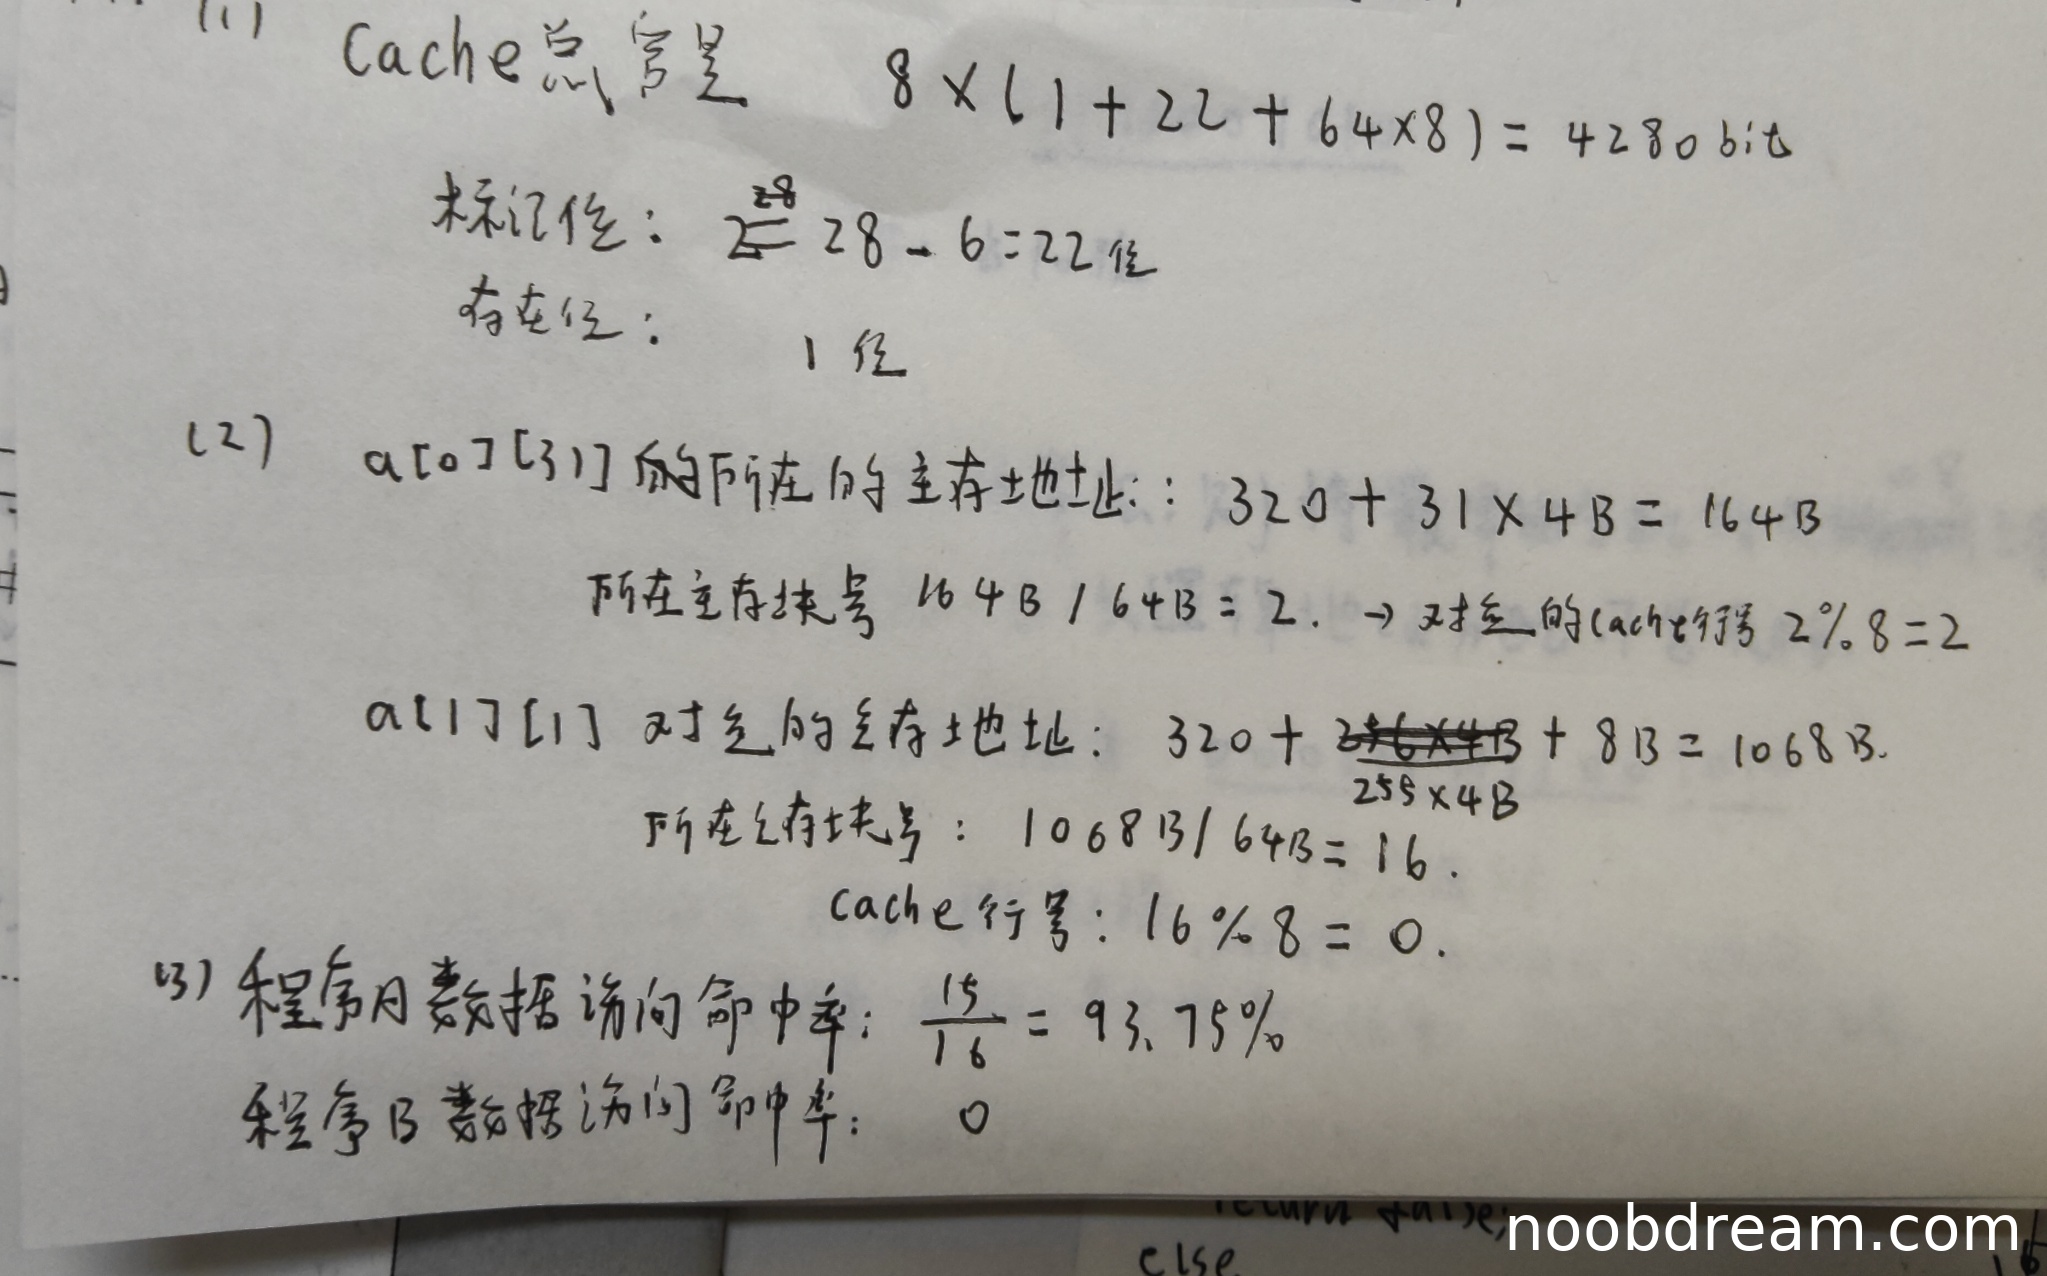 (1)
Cache总容量 8×(1+22+64×8)=4280bit
标记位: 28-6=22位
存在位: 1位
(2) a[0][31]的所在的主存地址:: 320+31×4B=164B
所在主存块号 164B/64B=2. → 对应的Cache行号 2%8=2
a[1][1] 对应的主存地址: 320+255×4B+8B=1068B.
所在主存块号: 1068B/64B=16.
Cache行号: 16%8=0.
(3) 程序A数据访问命中率: 15/16=93.75%
程序B数据访问命中率: 0
return false;
else
noobdream.com